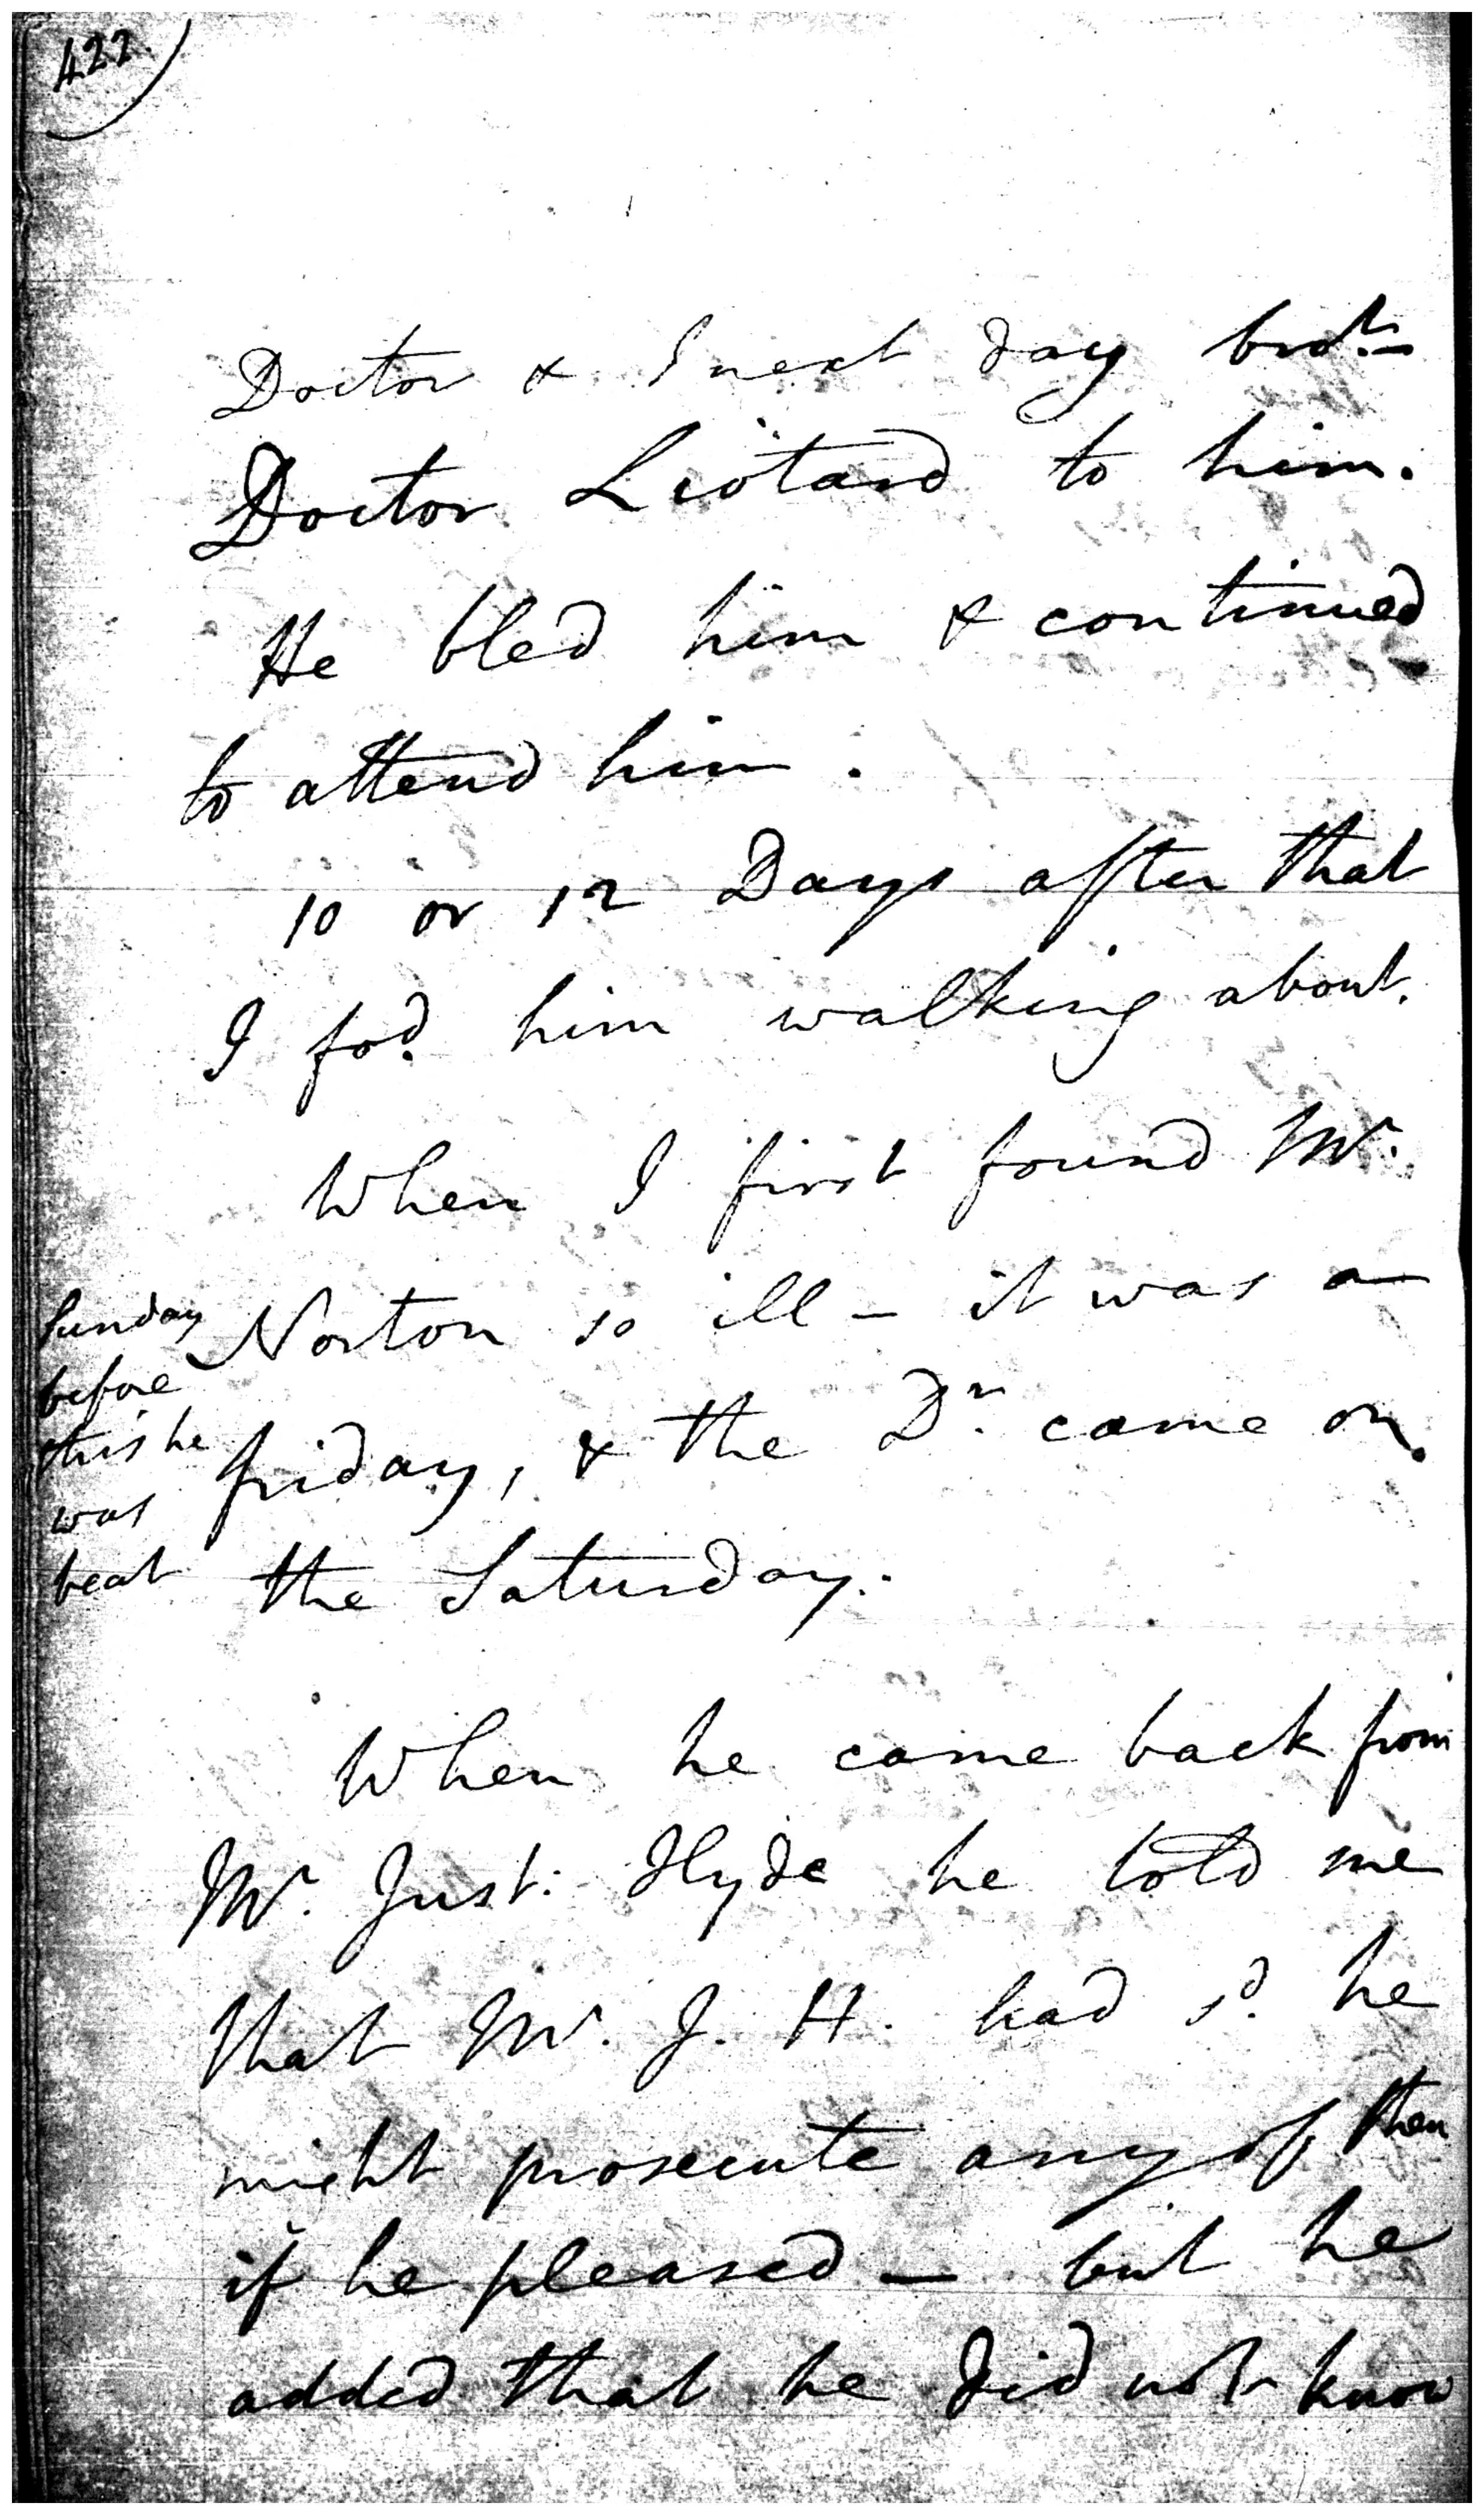 422
Doctor & I next day bro.t
Doctor Liotard to him.
He bled him & continued
to attend him.
10 or 12 Days after that
I fo.d him walking about.
When I first found Mr.
Norton so ill - it was a
friday, & the Dr. came on
the Saturday.
Sunday
before
this he
was
beat
When he came back from
Mr. Just: Hyde he told me
that Mr. J. H. had s.d he
might prosecute any of them
if he pleased - but he
added that he did not know